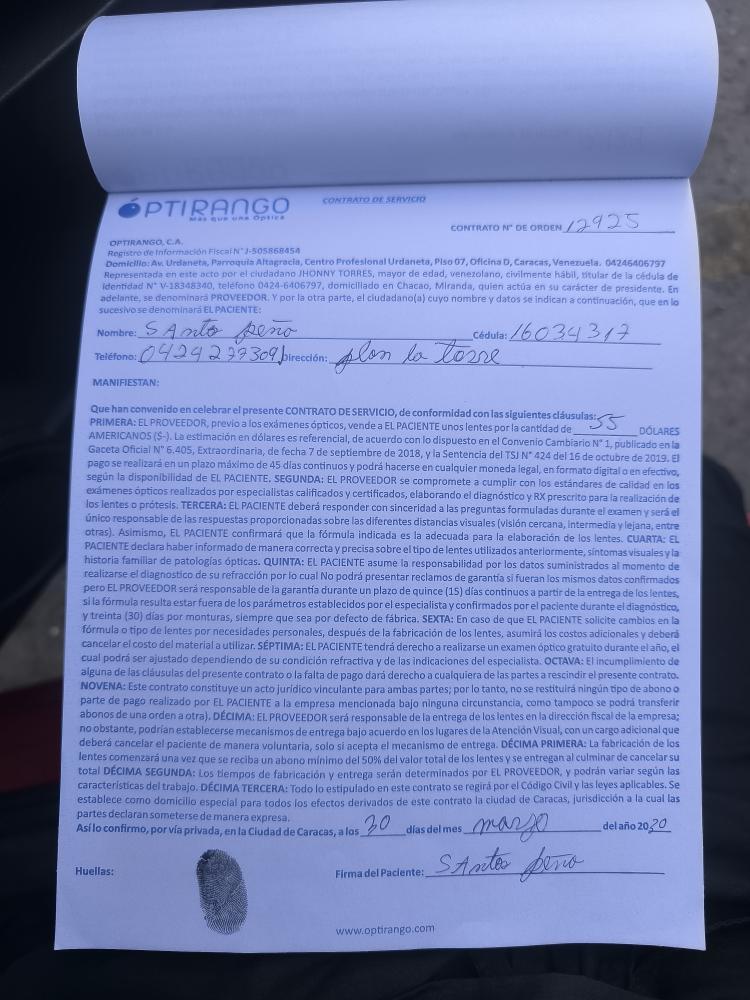 ÓPTIRANGO
Más que una Óptica
CONTRATO DE SERVICIO
CONTRATO N° DE ORDEN 12925
OPTIRANGO, C.A.
Registro de Información Fiscal N° J-505868454
Domicilio: Av. Urdaneta, Parroquia Altagracia, Centro Profesional Urdaneta, Piso 07, Oficina D, Caracas, Venezuela. 04246406797
Representada en este acto por el ciudadano JHONNY TORRES, mayor de edad, venezolano, civilmente hábil, titular de la cédula de
identidad N° V-18348340, teléfono 0424-6406797, domiciliado en Chacao, Miranda, quien actúa en su carácter de presidente. En
adelante, se denominará PROVEEDOR. Y por la otra parte, el ciudadano(a) cuyo nombre y datos se indican a continuación, que en lo
sucesivo se denominará EL PACIENTE:
Nombre: SAnto peño Cédula: 16034317
Teléfono: Dirección: plan la torre
MANIFIESTAN:
Que han convenido en celebrar el presente CONTRATO DE SERVICIO, de conformidad con las siguientes cláusulas:
PRIMERA: EL PROVEEDOR, previo a los exámenes ópticos, vende a EL PACIENTE unos lentes por la cantidad de 55 DÓLARES
AMERICANOS ($-). La estimación en dólares es referencial, de acuerdo con lo dispuesto en el Convenio Cambiario N° 1, publicado en la
Gaceta Oficial N° 6.405, Extraordinaria, de fecha 7 de septiembre de 2018, y la Sentencia del TSJ N° 424 del 16 de octubre de 2019. El
pago se realizará en un plazo máximo de 45 días continuos y podrá hacerse en cualquier moneda legal, en formato digital o en efectivo,
según la disponibilidad de EL PACIENTE. SEGUNDA: EL PROVEEDOR se compromete a cumplir con los estándares de calidad en los
exámenes ópticos realizados por especialistas calificados y certificados, elaborando el diagnóstico y RX prescrito para la realización de
los lentes o prótesis. TERCERA: EL PACIENTE deberá responder con sinceridad a las preguntas formuladas durante el examen y será el
único responsable de las respuestas proporcionadas sobre las diferentes distancias visuales (visión cercana, intermedia y lejana, entre
otras). Asimismo, EL PACIENTE confirmará que la fórmula indicada es la adecuada para la elaboración de los lentes. CUARTA: EL
PACIENTE declara haber informado de manera correcta y precisa sobre el tipo de lentes utilizados anteriormente, síntomas visuales y la
historia familiar de patologías ópticas. QUINTA: EL PACIENTE asume la responsabilidad por los datos suministrados al momento de
realizarse el diagnostico de su refracción por lo cual No podrá presentar reclamos de garantía si fueran los mismos datos confirmados
pero EL PROVEEDOR será responsable de la garantía durante un plazo de quince (15) días continuos a partir de la entrega de los lentes,
si la fórmula resulta estar fuera de los parámetros establecidos por el especialista y confirmados por el paciente durante el diagnóstico,
y treinta (30) días por monturas, siempre que sea por defecto de fábrica. SEXTA: En caso de que EL PACIENTE solicite cambios en la
fórmula o tipo de lentes por necesidades personales, después de la fabricación de los lentes, asumirá los costos adicionales y deberá
cancelar el costo del material a utilizar. SÉPTIMA: EL PACIENTE tendrá derecho a realizarse un examen óptico gratuito durante el año, el
cual podrá ser ajustado dependiendo de su condición refractiva y de las indicaciones del especialista. OCTAVA: El incumplimiento de
alguna de las cláusulas del presente contrato o la falta de pago dará derecho a cualquiera de las partes a rescindir el presente contrato.
NOVENA: Este contrato constituye un acto jurídico vinculante para ambas partes; por lo tanto, no se restituirá ningún tipo de abono o
parte de pago realizado por EL PACIENTE a la empresa mencionada bajo ninguna circunstancia, como tampoco se podrá transferir
abonos de una orden a otra). DÉCIMA: EL PROVEEDOR será responsable de la entrega de los lentes en la dirección fiscal de la empresa;
no obstante, podrían establecerse mecanismos de entrega bajo acuerdo en los lugares de la Atención Visual, con un cargo adicional que
deberá cancelar el paciente de manera voluntaria, solo si acepta el mecanismo de entrega. DÉCIMA PRIMERA: La fabricación de los
lentes comenzará una vez que se reciba un abono mínimo del 50% del valor total de los lentes y se entregan al culminar de cancelar su
total DÉCIMA SEGUNDA: Los tiempos de fabricación y entrega serán determinados por EL PROVEEDOR, y podrán variar según las
características del trabajo. DÉCIMA TERCERA: Todo lo estipulado en este contrato se regirá por el Código Civil y las leyes aplicables. Se
establece como domicilio especial para todos los efectos derivados de este contrato la ciudad de Caracas, jurisdicción a la cual las
partes declaran someterse de manera expresa.
Así lo confirmo, por vía privada, en la Ciudad de Caracas, a los 30 días del mes marzo del año 2020
Huellas:
Firma del Paciente: SAntos peño
www.optirango.com